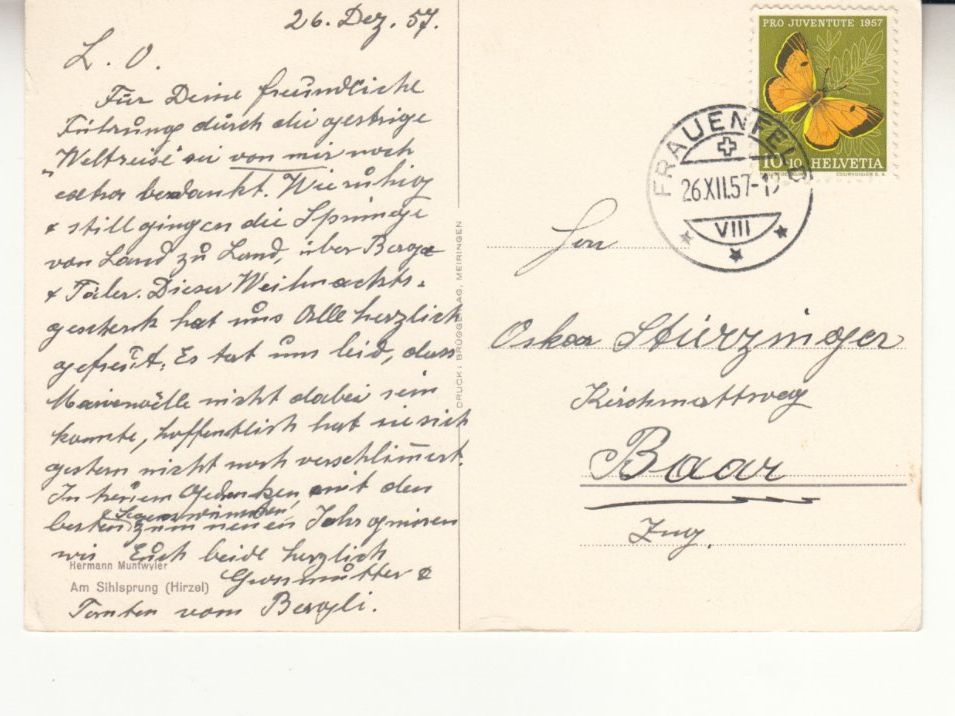 26. Dez. 57.
L. O.
Für Deine freundliche
Führung durch die gestrige
"Weltreise" sei von mir noch
extra bedankt. Wie ruhig
& still gingen die Sprünge
von Land zu Land, über Berge
& Täler. Dieser Weihnachts-
geschenk hat uns Alle herzlich
gefreut. Es tat uns leid, dass
nicht dabei sein
konnte, hoffentlich hat sie sich
gestern nicht noch verschlimmert.
In treuem Gedenken mit den
besten & Segenswünschen, zum neuen Jahr grüssen
wir Euch beide herzlich
Grossmutter &
Tanten vom Bergli.
Hermann Muntwyler
Am Sihlsprung (Hirzel)
DRUCK: BRÜGGER AG, MEIRINGEN
PRO JUVENTUTE 1957
10+10 HELVETIA
COURVOISIER S.A.
FRAUENFELD
26.XII.57-19
VIII
Herrn
Oskar Stürzinger
Kirchmattweg
Baar
Zug.